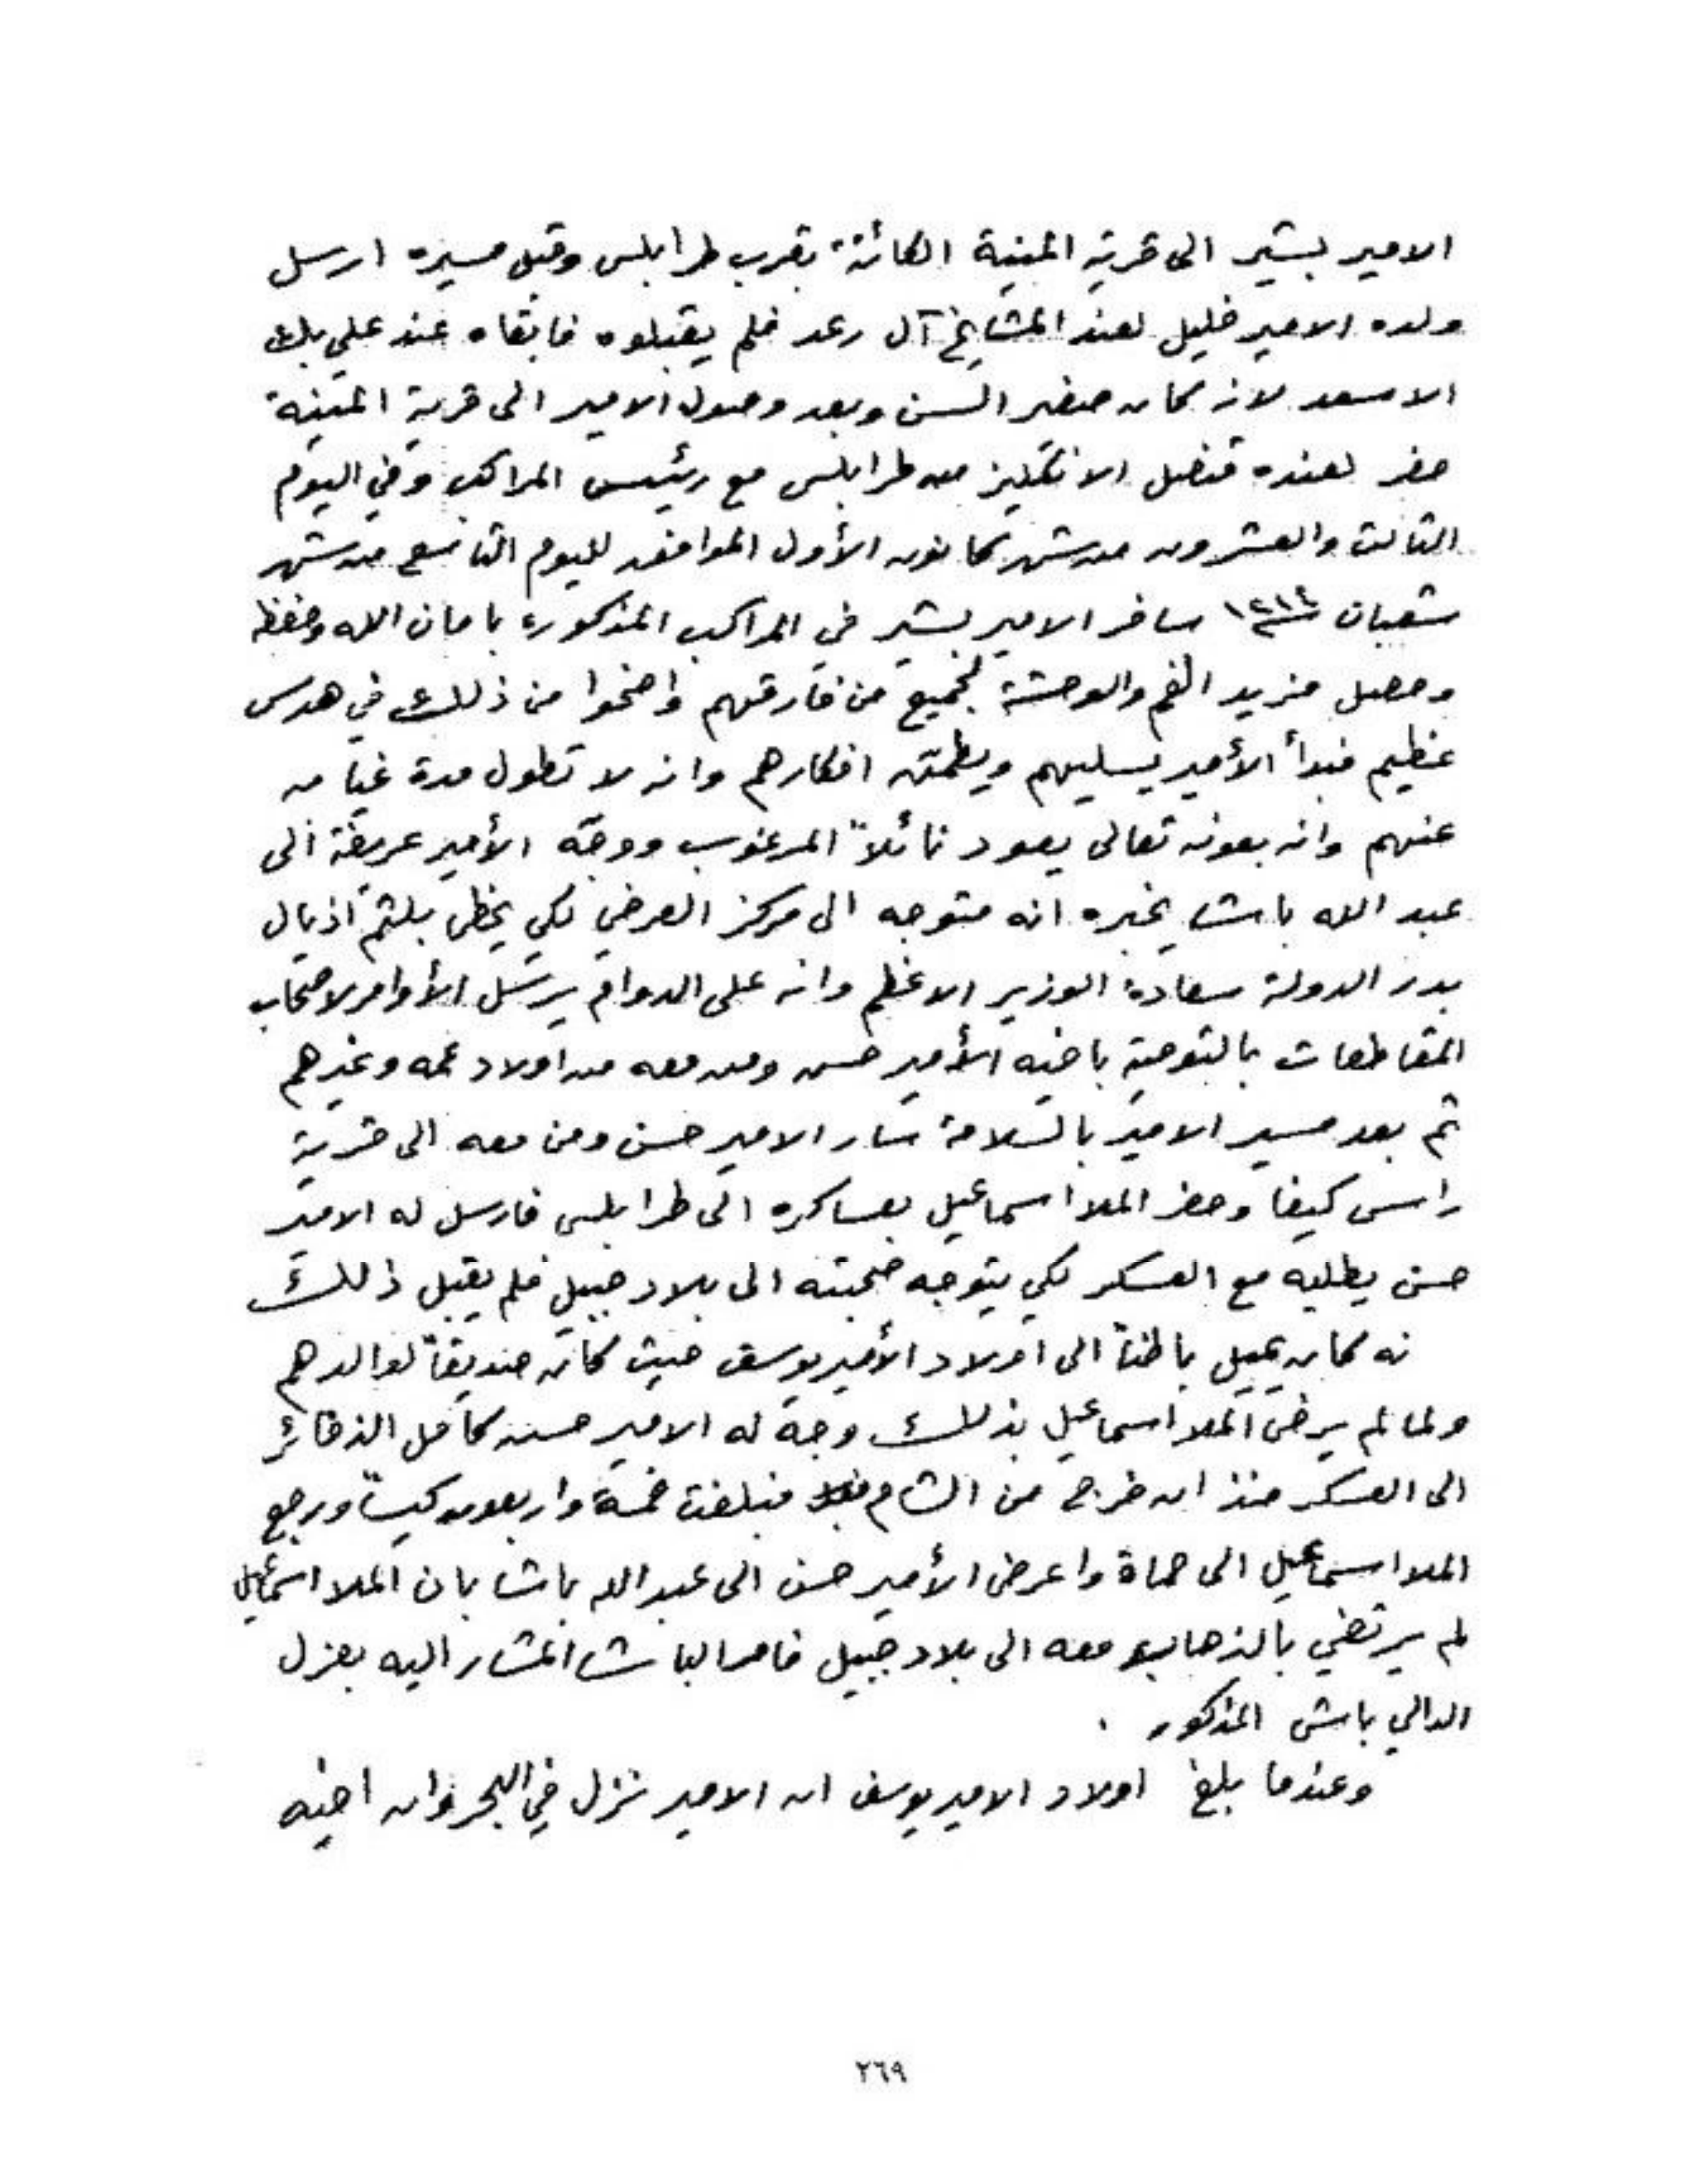 الامير بشير الى قرية المنية الكائنة بقرب طرابلس وقبل مسيره ارسل
ولده الامير خليل لعند المشايخ آل رعد فلم يقبلوه فابقاه عند علي بك
الاسعد لانه كان صغير السن وبعد وصول الامير الى قرية المنية
حضر لعنده قنصل الانكليز من طرابلس مع رئيس المراكب وفي اليوم
الثالث والعشرون من شهر كانون الأول الموافق لليوم التاسع من شهر
شعبان ١٢١٤ سافر الامير بشير في المراكب المذكورة بامان الله وحفظه
وحصل مزيد الغم والوحشة لجميع من فارقهم واضحوا من ذلك في هدس
عظيم فبدأ الأمير يسليهم ويطمّن افكارهم وانه لا تطول مدة غيابه
عنهم وانه بعونه تعالى يعود نائلاً المرغوب ووجّه الأمير عريضة الى
عبد الله باشا يخبره انه متوجه الى مركز العرضي لكي يحظى بلثم اذيال
بدر الدولة سعادة الوزير الاعظم وانه على الدوام يرسل الأوامر لاصحاب
المقاطعات بالتوصية باخيه الأمير حسن ومن معه من اولاد عمه وغيرهم
ثم بعد مسير الامير بالسلامة سار الامير حسن ومن معه الى قرية
راس كيفا وحضر الملا اسماعيل بعساكره الى طرابلس فارسل له الامير
حسن يطلبه مع العسكر لكي يتوجه صحبته الى بلاد جبيل فلم يقبل ذلك
نه كان يميل باطناً الى اولاد الأمير يوسف حيث كان صديقاً لوالدهم
ولما لم يرضَ الملا اسماعيل بذلك وجّه له الامير حسن كامل الذخائر
الى العسكر منذ ان خرج من الشام فبلغت خمسة واربعون كيساً ورجع
الملا اسماعيل الى حماة واعرض الأمير حسن الى عبد الله باشا بان الملا اسماعيل
لم يرتضي بالذهاب معه الى بلاد جبيل فامر الباشا المشار اليه بعزل
الدالي باش المذكور .
وعندما بلغ اولاد الامير يوسف ان الامير نزل في البحر وان اخيه
٢٦٩